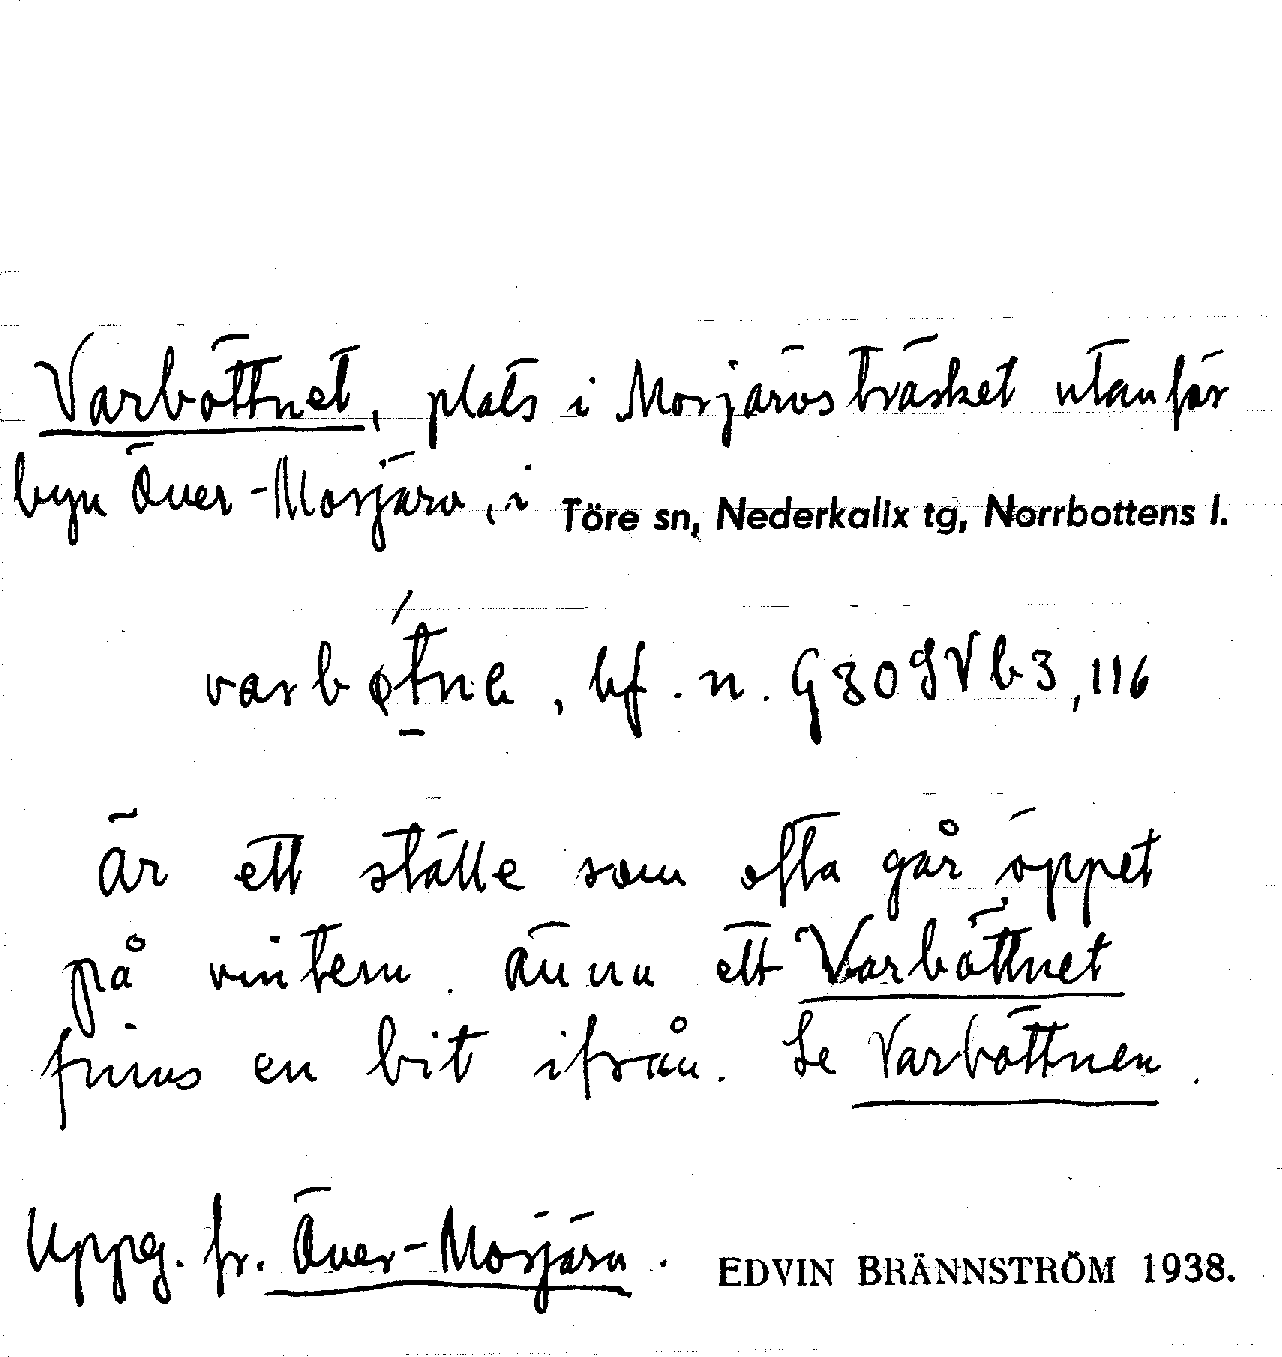 Varböttnet, plats i Morjärvsträsket utanför
byn Över-Morjärv, i Töre sn, Nederkalix tg, Norrbottens l.
bf. n.
är ett ställe som ofta går öppet
på vintern. Ännu ett Varböttnet
finns en bit ifrån. Se Varböttnen.
Uppg. fr. Över-Morjärv. EDVIN BRÄNNSTRÖM 1938.